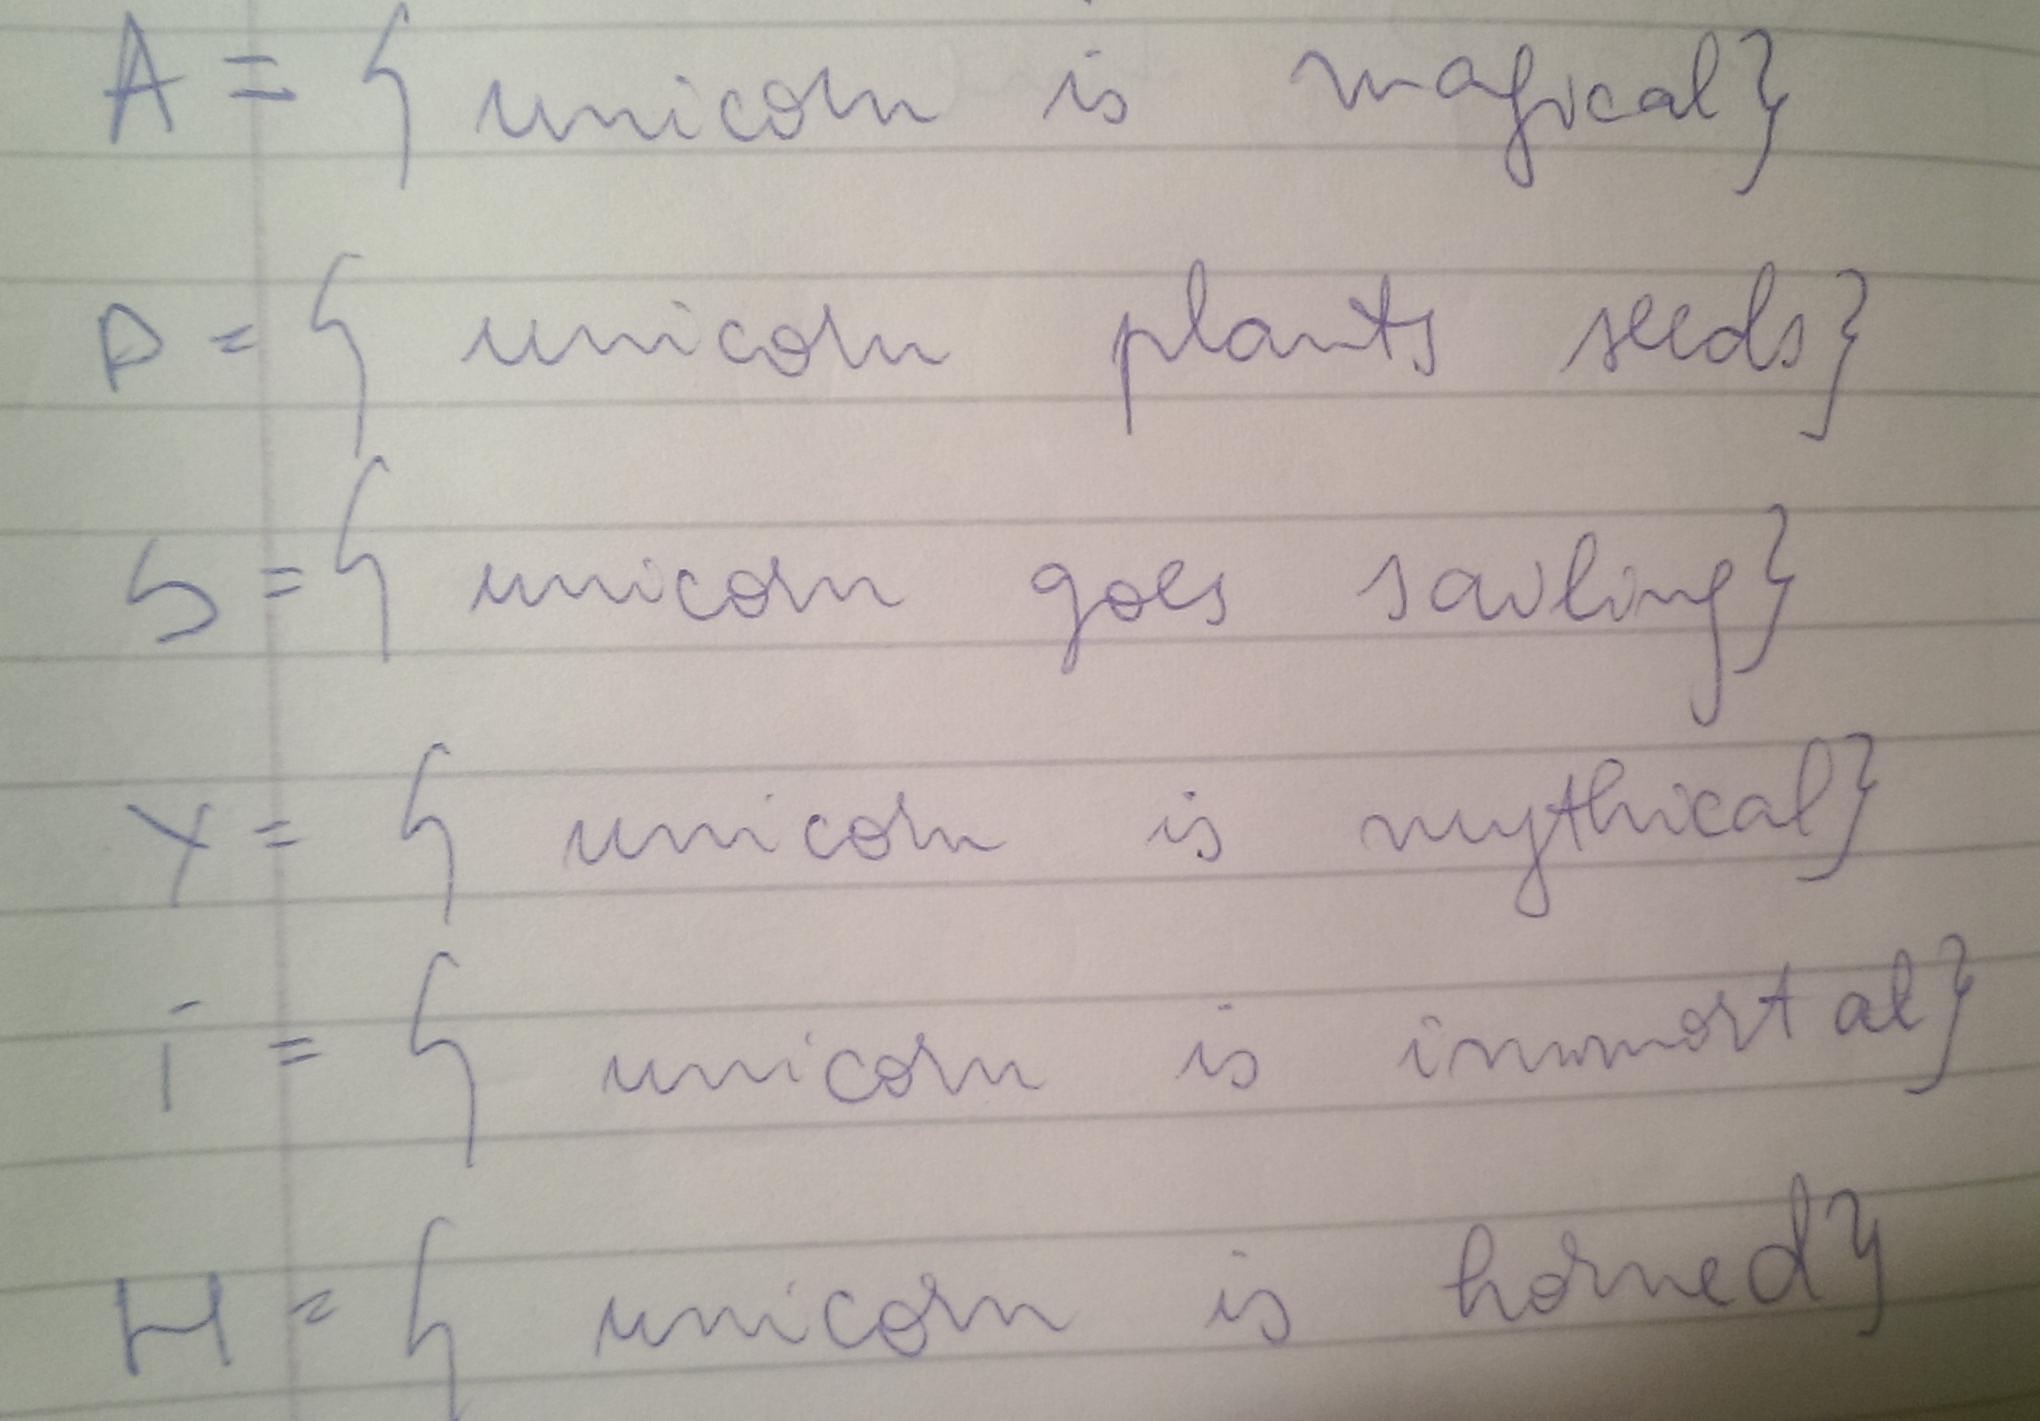 A = { unicorn is magical}
P = { unicorn plants seeds}
S = { unicorn goes sailing}
Y = { unicorn is mythical}
i = { unicorn is immortal}
H = { unicorn is horned}